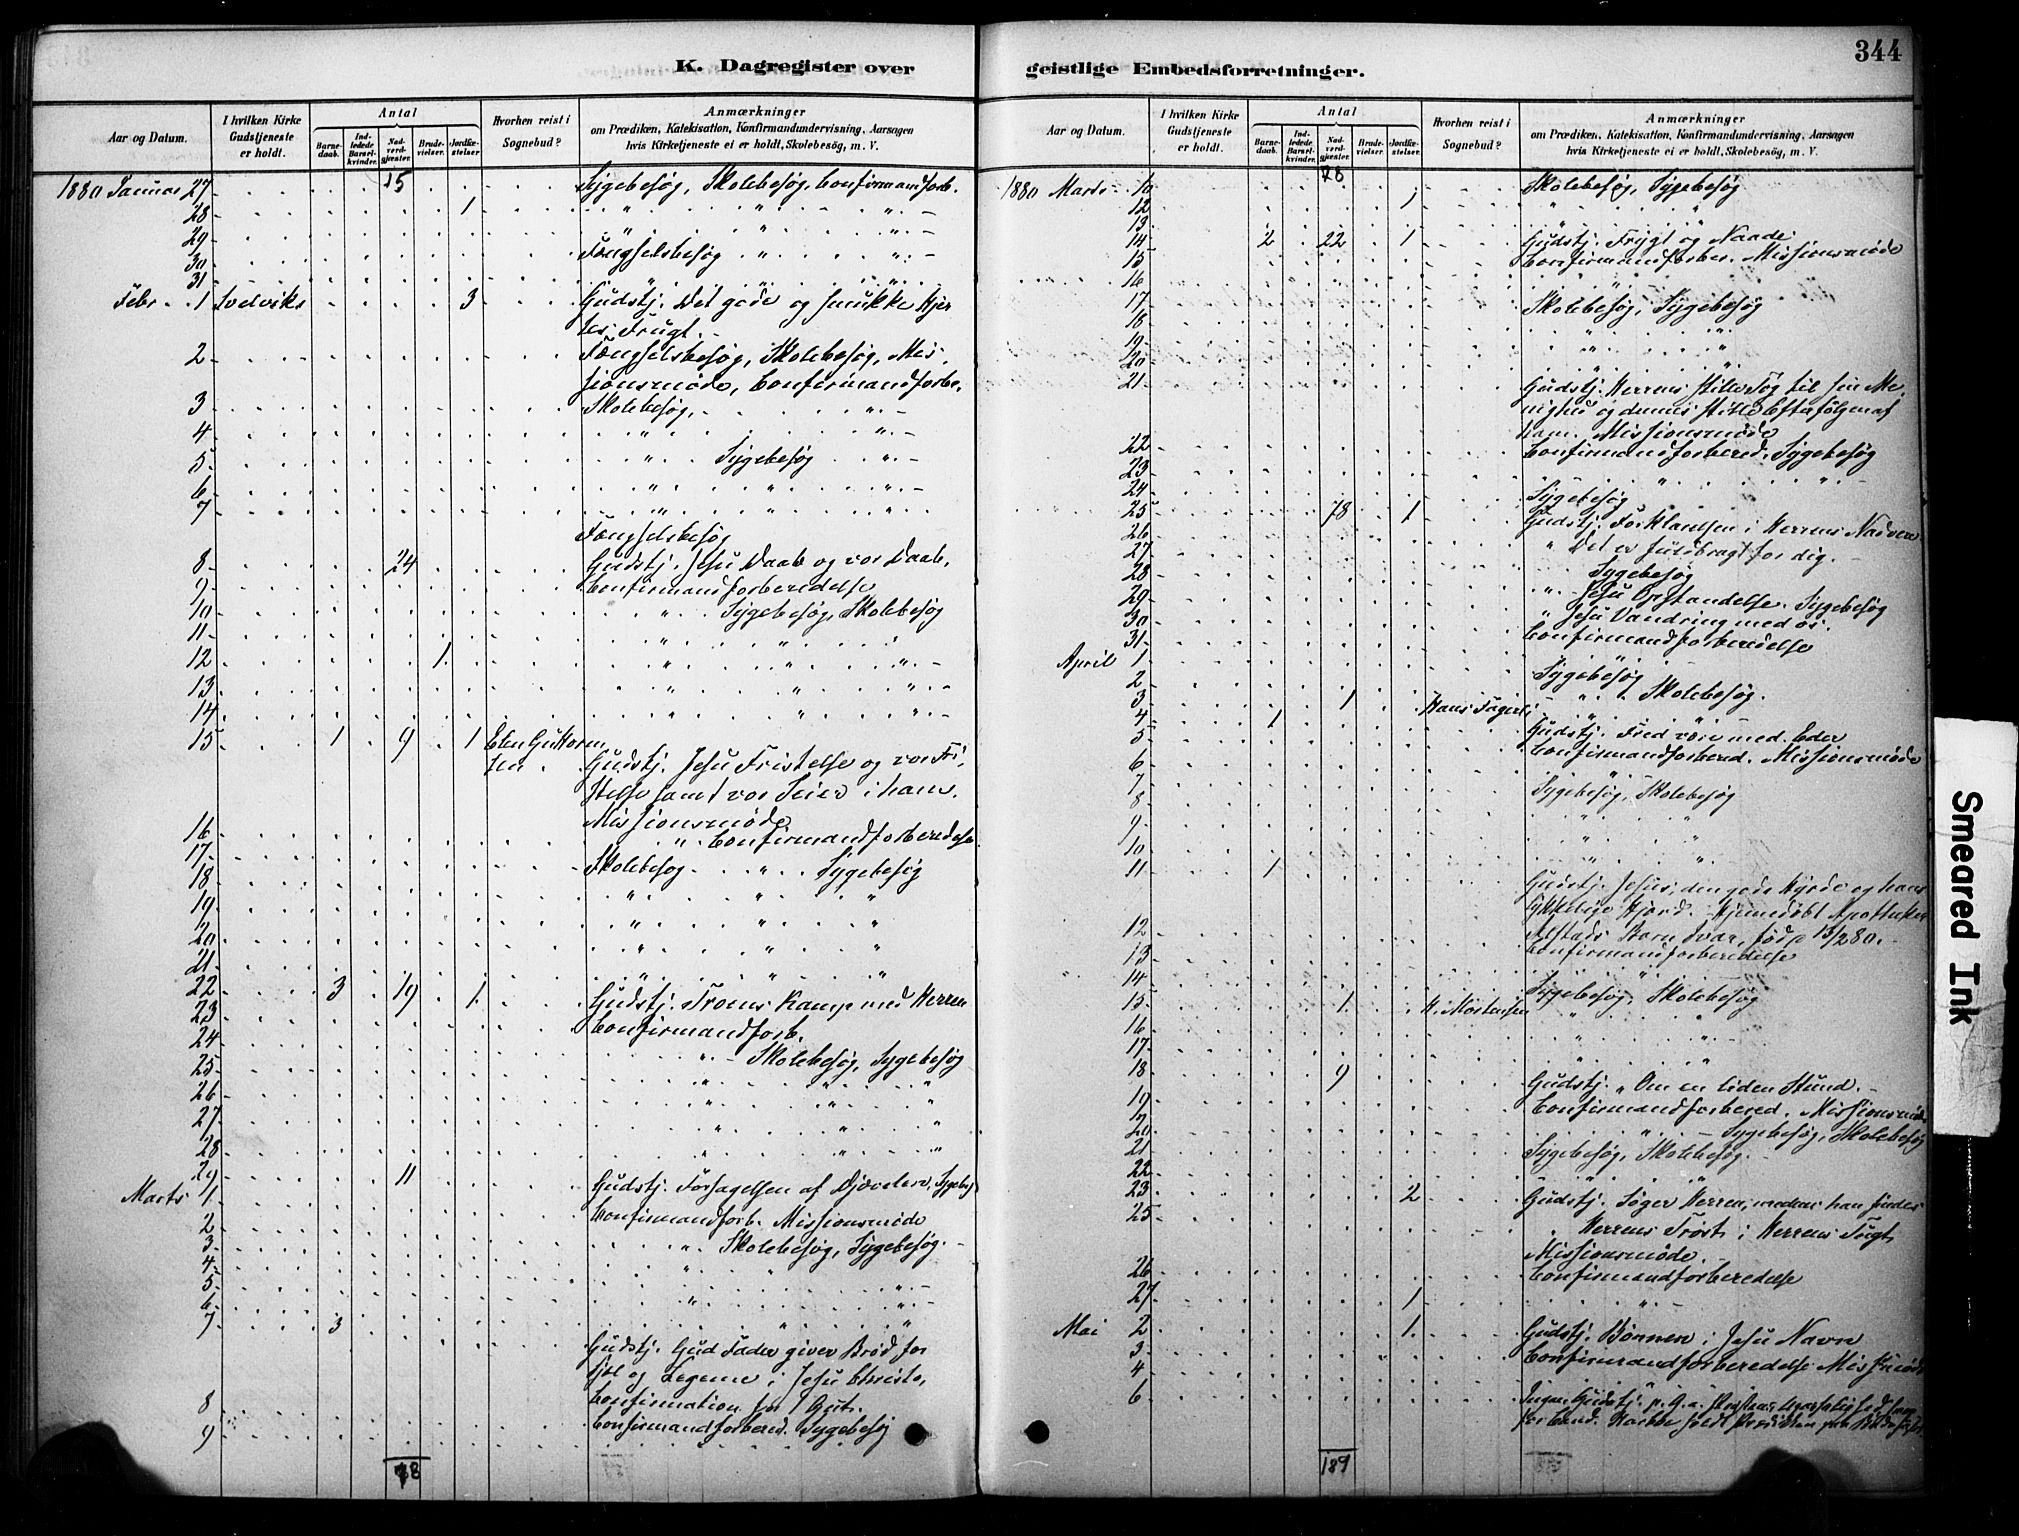 K. Dagregister over
Aar og Datum.
I hvilken Kirke Gudstjeneste er holdt.
Antal
Barne-daab.
Ind-ledede Barsel-kvinder.
Nad-verd-gjæster.
Brude-vielser.
Jordfæ-stelser.
Hvorhen reist i Sognebud?
Anmærkninger
om Prædiken, Katekisation, Konfirmandundervisning, Aarsagen
hvis Kirketjeneste ei er holdt, Skolebesøg, m. V.
1880 Januar 27 15 Sygebesøg, Skolebesøg, Confirmandforb.
28 1 " " "
29 " " "
30 Fængselsbesøg " "
31 " " "
Febr. 1 Svelviks 3 Gudstj. Det gode og smukke Hjer
tes Frugt.
2 Fængselsbesøg, Skolebesøg, Mis
sionsmøde, Confirmandforbe.
3 Skolebesøg, "
4 " "
5 " Sygebesøg "
6 " " "
7 " " "
Fængselsbesøg
8 24 Gudstj. Jesu Daab og vor Daab.
9 Confirmandforberedelse
10 " Sygebesøg, Skolebesøg
11 " " "
12 1 " " "
13 " " "
14 " " "
15 1 9 1 Gudstj. Jesu Fristelse og vor Fri
stelse samt vor Seier i ham.
Missionsmøde
16 " Confirmandforberedelse
17 Skolebesøg " Sygebesøg
18 " " "
19 " " "
20 " " "
21 " " "
22 3 19 1 Gudstj. Troens Kamp med Herren
23 Confirmandforb.
24 " Skolebesøg, Sygebesøg
25 " " "
26 " " "
27 " " "
28 " " "
29 11 Gudstj. Forsagelsen af Djævelen,
Marts 1 Confirmandforb. Missionsmøde
2 " Skolebesøg, Sygebesøg
3
4
5
6
7 3 Gudstj. Gud Fader giver Brød for
Sjæl og Legeme i Jesu Christo,
8 Confirmation for 1 Gut.
9 Confirmandforbered. Sygebesøg
78
geistlige Embedsforretninger.
344
Aar og Datum.
I hvilken Kirke Gudstjeneste er holdt.
Antal
Barne-daab.
Ind-ledede Barsel-kvinder.
Nad-verd-gjæster.
Brude-vielser.
Jordfæ-stelser.
Hvorhen reist i Sognebud?
Anmærkninger
om Prædiken, Katekisation, Konfirmandundervisning, Aarsagen
hvis Kirketjeneste ei er holdt, Skolebesøg, m. V.
78
1880 Marts 10 Skolebesøg, Sygebesøg
12 1 " "
13 " "
14 2 22 1 Gudstj. Frygt og Naade.
15 Confirmandforber. Missionsmøde
16 " "
17 Skolebesøg, Sygebesøg
18 " "
19 " "
20 " "
21 Gudstj. Herrens stille Tog til sin Me
nighed og dennes stille Efterfølgen af
ham. Missionsmøde
22 Confirmandforbered. Sygebesøg
23 " "
24 Sygebesøg
25 78 1 Gudstj. i Herrens Nadvere
26 " Det er fuldbragt for dig.
27 Sygebesøg
28 " Jesu Opstandelse. Sygebesøg
29 " Jesu Vandring med os.
30 Confirmandforberedelse
31
April 1 Sygebesøg
2 " Skolebesøg.
3 1
4 1 Gudstj. Fred være med Eder
5 Confirmandforbered. Missionsmøde
6 "
7 Sygebesøg, Skolebesøg
8 " "
9 " "
10 " "
11 1 Gudstj. Jesus, den gode Hyrde og hans
lykkelige Hjord. Hjemmedøbt Apotheker
Barn Ivar, född 13/2 80.
12 Confirmandforberedelse
13 "
14 Sygebesøg, Skolebesøg
15 1 H. Mortensen " "
16 " "
17 " "
18 9 Gudstj. "Om en liden Stund.
19 Confirmandforbered. Missionsmøde
20 " Sygebesøg, Skolebesøg
21 Sygebesøg, Skolebesøg.
22 " "
23 2 Gudstj. Søger Herren, medens han findes
25 " Herrens Trøst i Herrens Tugt
Missionsmøde
26 Confirmandforberedelse
27 1 "
Mai 2 1 Gudstj. Bønnen i Jesu Navn
3 Confirmandforberedelse
4 "
6 Ingen Gudstj. p. G. a.
189
Smeared Ink